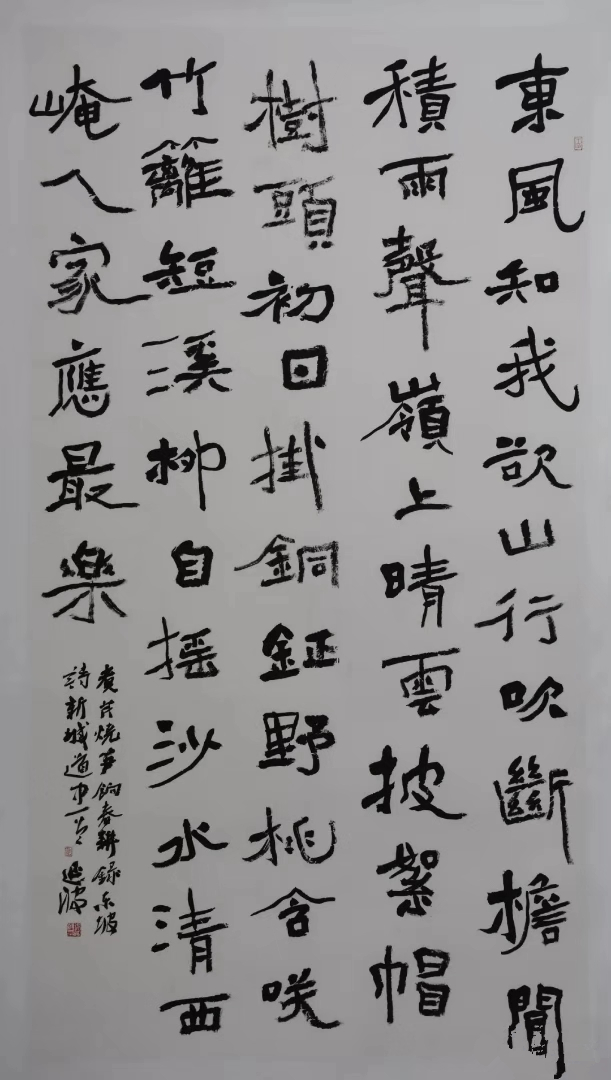 東風知我欲山行吹斷檐間
積雨聲嶺上晴雲披絮帽
樹頭初日掛銅鉦野桃含咲
竹籬短溪柳自摇沙水清西
崦人家應最樂
煮芹燒笋餉春耕錄東坡
詩新城道中一首